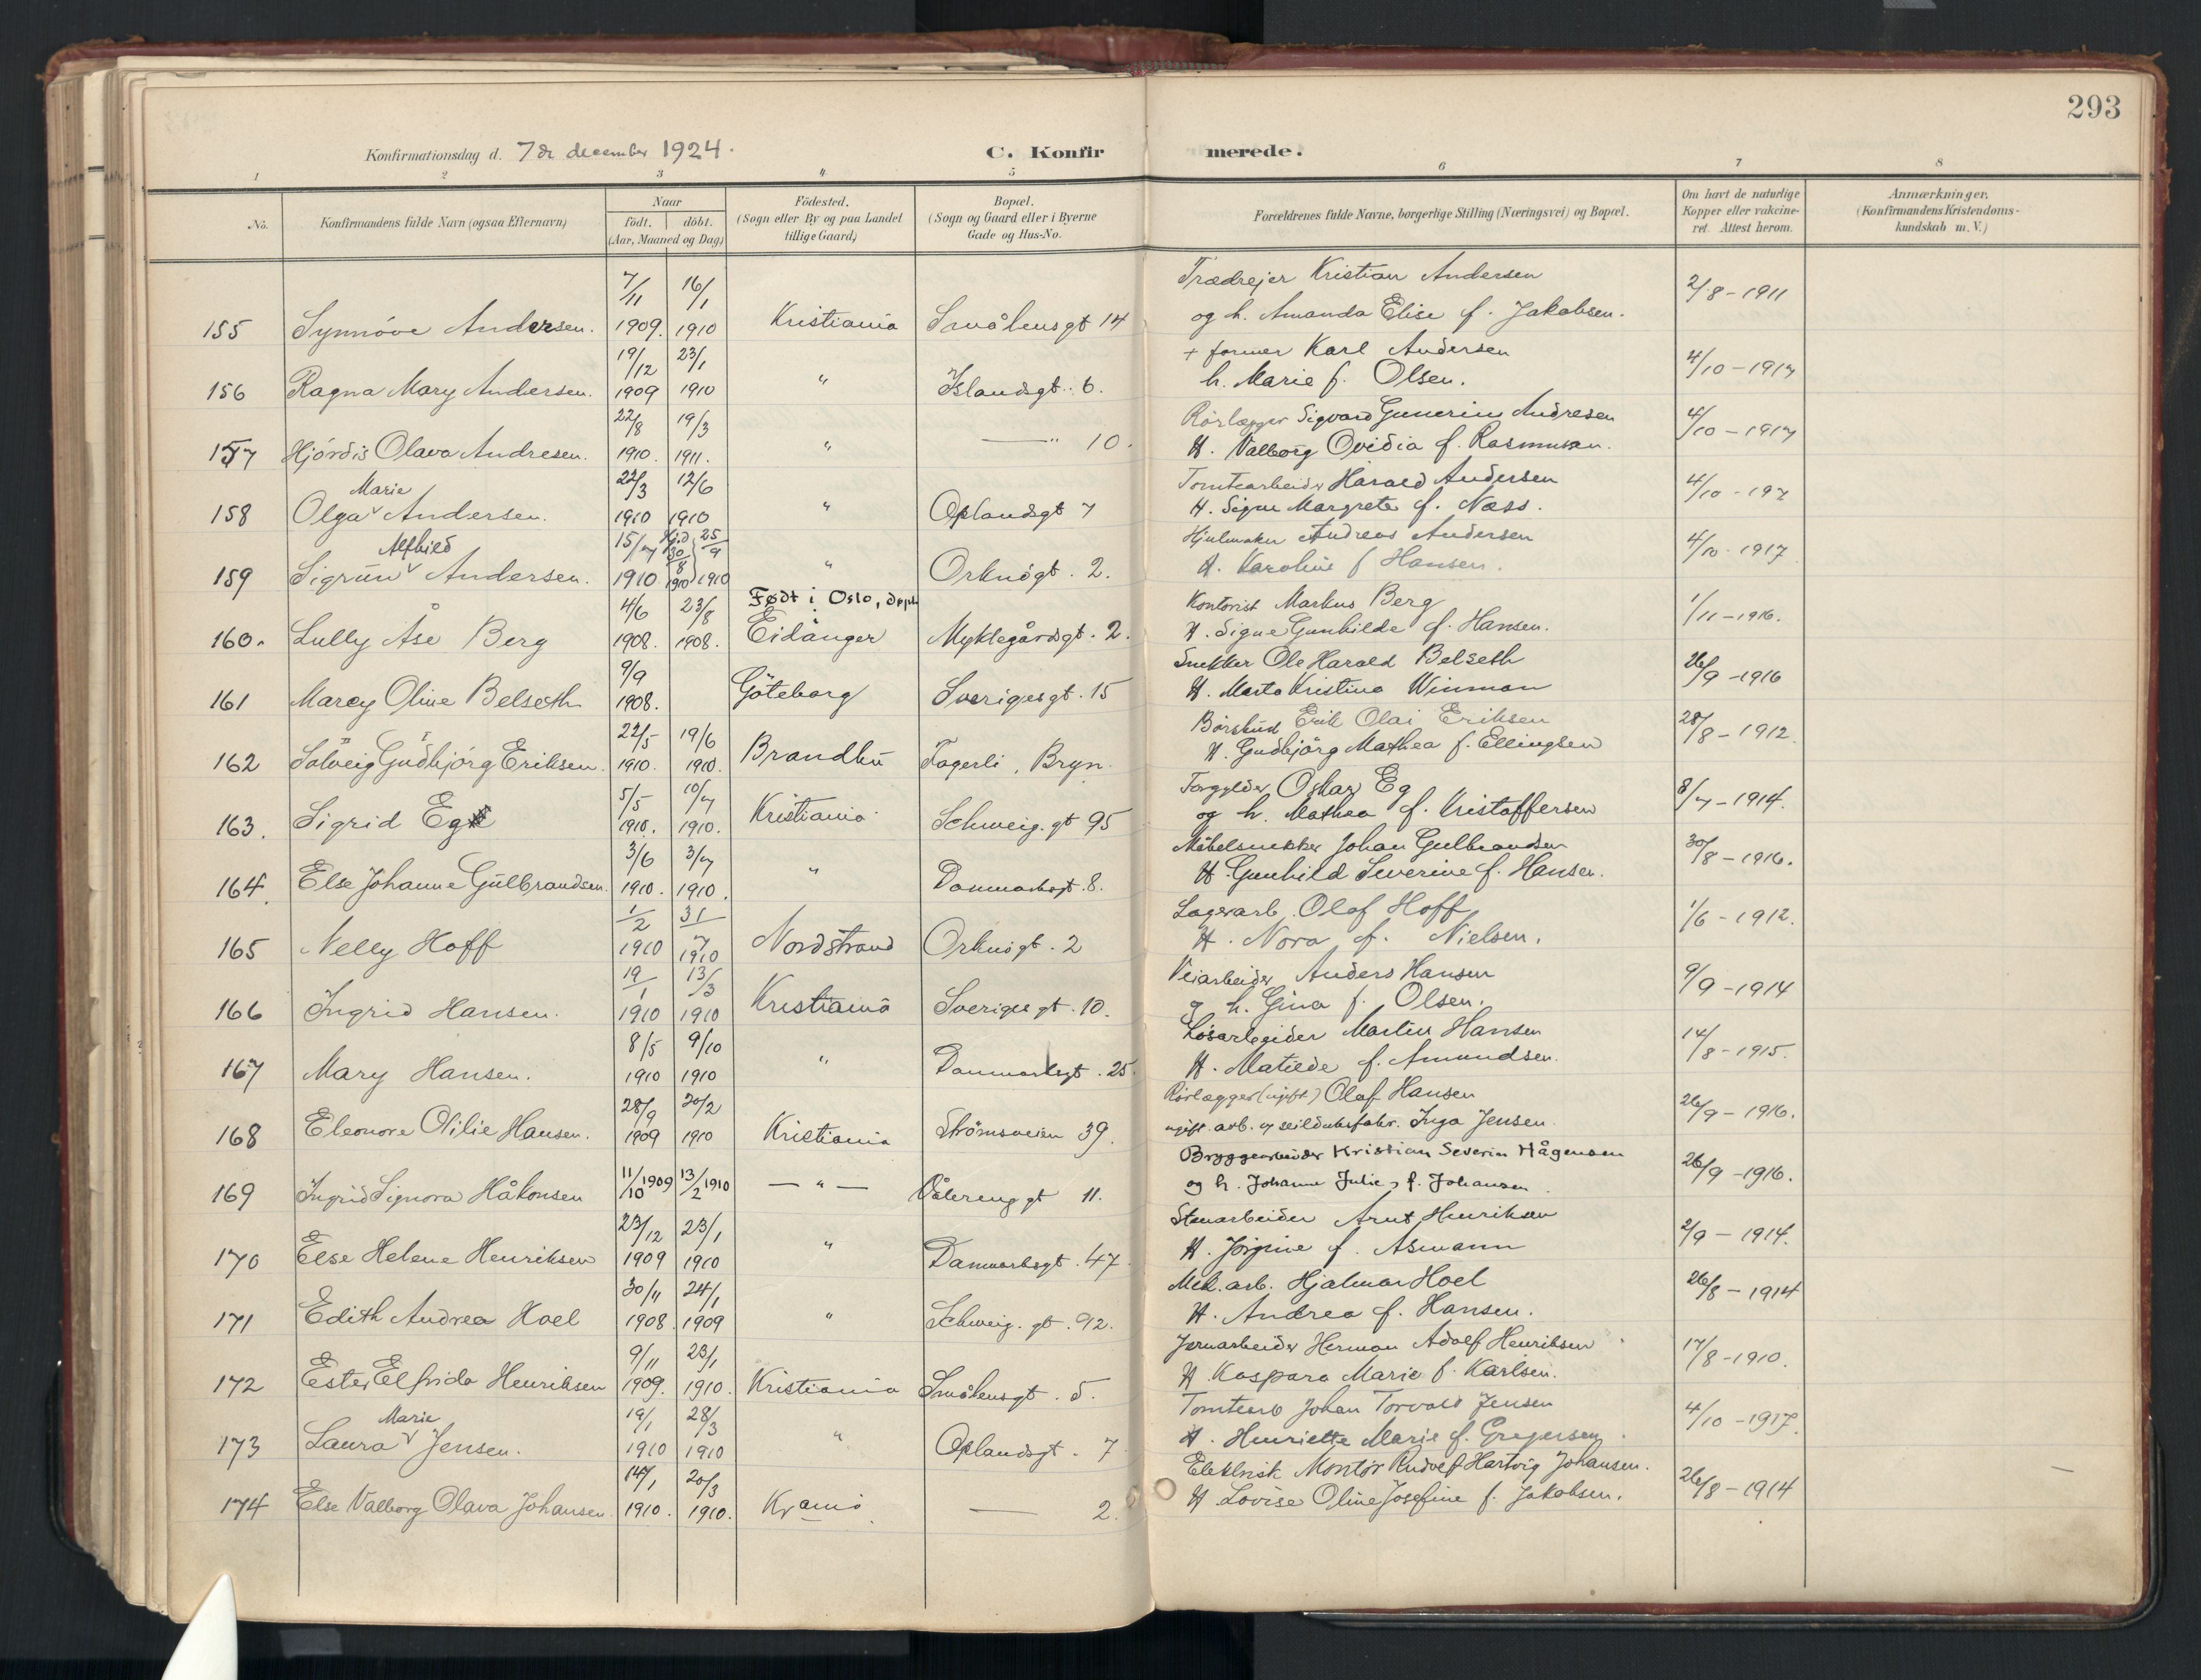 293
Konfirmationsdag d. 7de december 1924.
C. Konfirmerede.
1 2 3 4 5 6 7 8
No.
Konfirmandens fulde Navn (ogsaa Efternavn)
Naar
födt. döbt.
(Aar, Maaned og Dag)
Födested.
(Sogn eller By og paa Landet
tillige Gaard)
Bopæl.
(Sogn og Gaard eller i Byerne
Gade og Hus-No.
Forældrenes fulde Navne, borgerlige Stilling (Næringsvei) og Bopæl.
Om havt de naturlige
Kopper eller vakcine-
ret. Attest herom.
Anmærkninger.
(Konfirmandens Kristendoms-
kundskab m. V.)
7/11 16/1 Trædrejer Kristian Andersen
155 Synnöve Andersen. 1909. 1910 Kristiania Smålensgt 14 og h. Amanda Elise f. Jakobsen. 2/8-1911
19/12 23/1 + former Karl Andersen
156 Ragna Mary Andersen. 1909 1910 " Islandsgt. 6. h. Marie f. Olsen. 4/10-1917
22/8 19/3 Rörlægger Sigvard Gunerius Andresen
157 Hjördis Olava Andresen. 1910. 1911. " —"— 10. H. Valborg Ovidia f. Rasmussen. 4/10-1917
Marie 22/3 12/6 Tomtearbeider Harald Andersen
158 Olga v Andersen. 1910 1910 " Oplandsgt 7 H. Signe Margrete f. Næss. 4/10-197
Alfhild 15/7 Hjd 30/8 1910 25/9 Hjulmaker Andreas Andersen
159 Sigrun v Andersen. 1910. 1910 " Orknögt. 2. H. Karoline f Hansen. 4/10-1917
4/6 23/8 Født i Oslo, døpt Kontorist Markus Berg
160. Lully Åse Berg 1908. 1908. Eidanger Myklegårdsgt. 2. H. Signe Gunhilde f. Hansen. 1/11-1916.
9/9 Snekker Ole Harald Belseth
161 Marcy Oline Belseth 1908. Göteborg Sverigesgt. 15 H. Marta Kristina Winman 26/9-1916
22/5 19/6 Börsbud Erik Olai Eriksen
162 Solveig Gudbjörg Eriksen. 1910. 1910. Brandbu Fagerli, Bryn. H. Gudbjörg Mathea f. Ellingsen 28/8-1912.
5/5 10/7 Forgylder Oskar Eg
163. Sigrid Eg 1910. 1910. Kristiania Schweig. gt 95 og h. Mathea f. Kristoffersen 8/7-1914.
3/6 3/7 Möbelsnekker Johan Gulbrandsen
164. Else Johanne Gulbrandsen. 1910. 1910. " Danmarksgt. 8. H. Gunhild Severine f. Hansen. 30/8-1916.
1/2 31/7 Lagerarb. Olaf Hoff
165 Nelly Hoff 1910 1910 Nordstrand Orknögt. 2 H. Nora f. Nielsen. 1/6-1912.
19/1 13/3 Veiarbeider Anders Hansen
166 Ingrid Hansen. 1910 1910 Kristiania Sverigesgt. 10. g h. Gina f. Olsen. 9/9-1914
8/5 9/10 Lösarbeider Martin Hansen
167 Mary Hansen. 1910 1910 " Danmarksgt. 25. H. Matilde f. Amundsen. 14/8-1915.
28/9 20/2 Rörlægger (ugift) Olaf Hansen
168 Eleonore Otilie Hansen. 1909 1910 Kristiania Strömsveien 39. ugift arb. og seilduksfabr. Inga Jensen. 26/9-1916.
Bryggearbeider Kristian Severin Hågensen
169 Ingrid Signora Håkonsen 11/10 1909 13/2 1910 —"— Vålereng gt 11. og h. Johanne Julie, f. Johansen. 26/9-1916.
23/12 23/1 Stenarbeider Arnt Henriksen
170 Else Helene Henriksen 1909 1910 " Danmarksgt. 47. H. Jörgine f. Asmann 2/9-1914.
30/11 24/1 Mek. arb. Hjalmar Hoel
171 Edith Andrea Hoel 1908. 1909 " Schweig. gt. 92. H. Andrea f. Hansen. 26/8-1914
9/11 23/1 Jernarbeider Herman Adolf Henriksen
172 Ester Elfrida Henriksen 1909. 1910. Kristiania Smålensgt. 5. H. Kaspara Marie f. Karlsen. 17/8-1910.
Marie 19/1 28/3 Tomtearb Johan Torvald Jensen
173 Laura v Jensen. 1910 1910 " Oplandsgt. 7 H. Henriette Marie f. Gregersen. 4/10-1917.
14/1 20/3 Elektrisk Montör Rudolf Hartvig Johansen.
174 Else Valborg Olava Johansen 1910. 1910. Kr ania — 2. H Lovise Oline Josefine f. Jakobsen. 26/8-1914